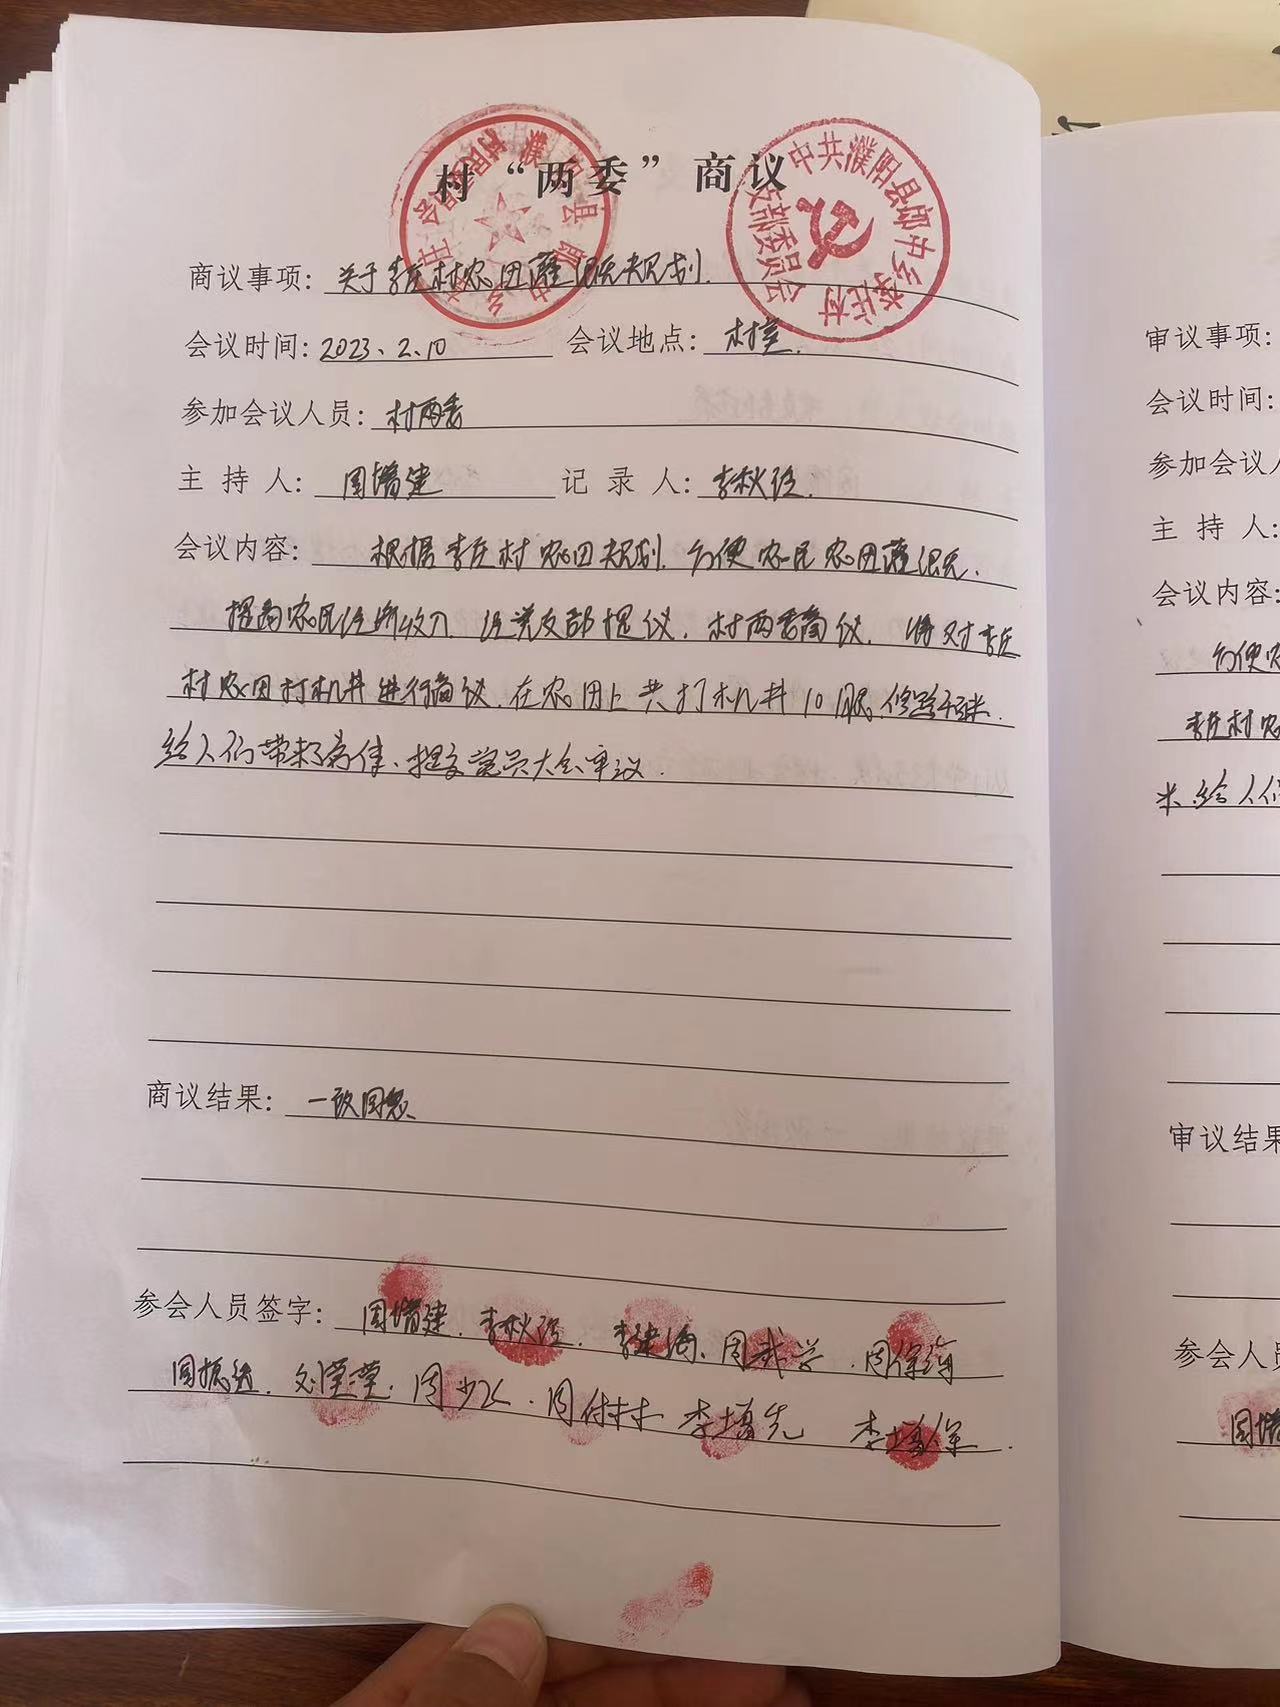 村“两委”商议
中共濮阳县郎中乡李庄村
支部委员会
商议事项：关于李庄村农田灌溉规划.
会议时间：2023.2.10 会议地点：村室.
参加会议人员：村两委
主 持 人：周增建 记 录 人：李秋
会议内容：根据李庄村农田规划.方便农民农田灌溉.
提高农民经济收入.经党支部提议.村两委商议.将对李庄
村农田打机井进行商议.在农田上共打机井10眼.修路
给人们带来方便、提交党员大会审议.
商议结果：一致同意、
参会人员签字：周增建.李秋 李建海、周武学.周保海
周振 .刘莹莹.周少 .周付林 李增先 李增军.
审议事项：
会议时间：
参加会议人
主 持 人：
会议内容：
方便农
李庄村农
米.给人们
审议结果
参会人员
周增